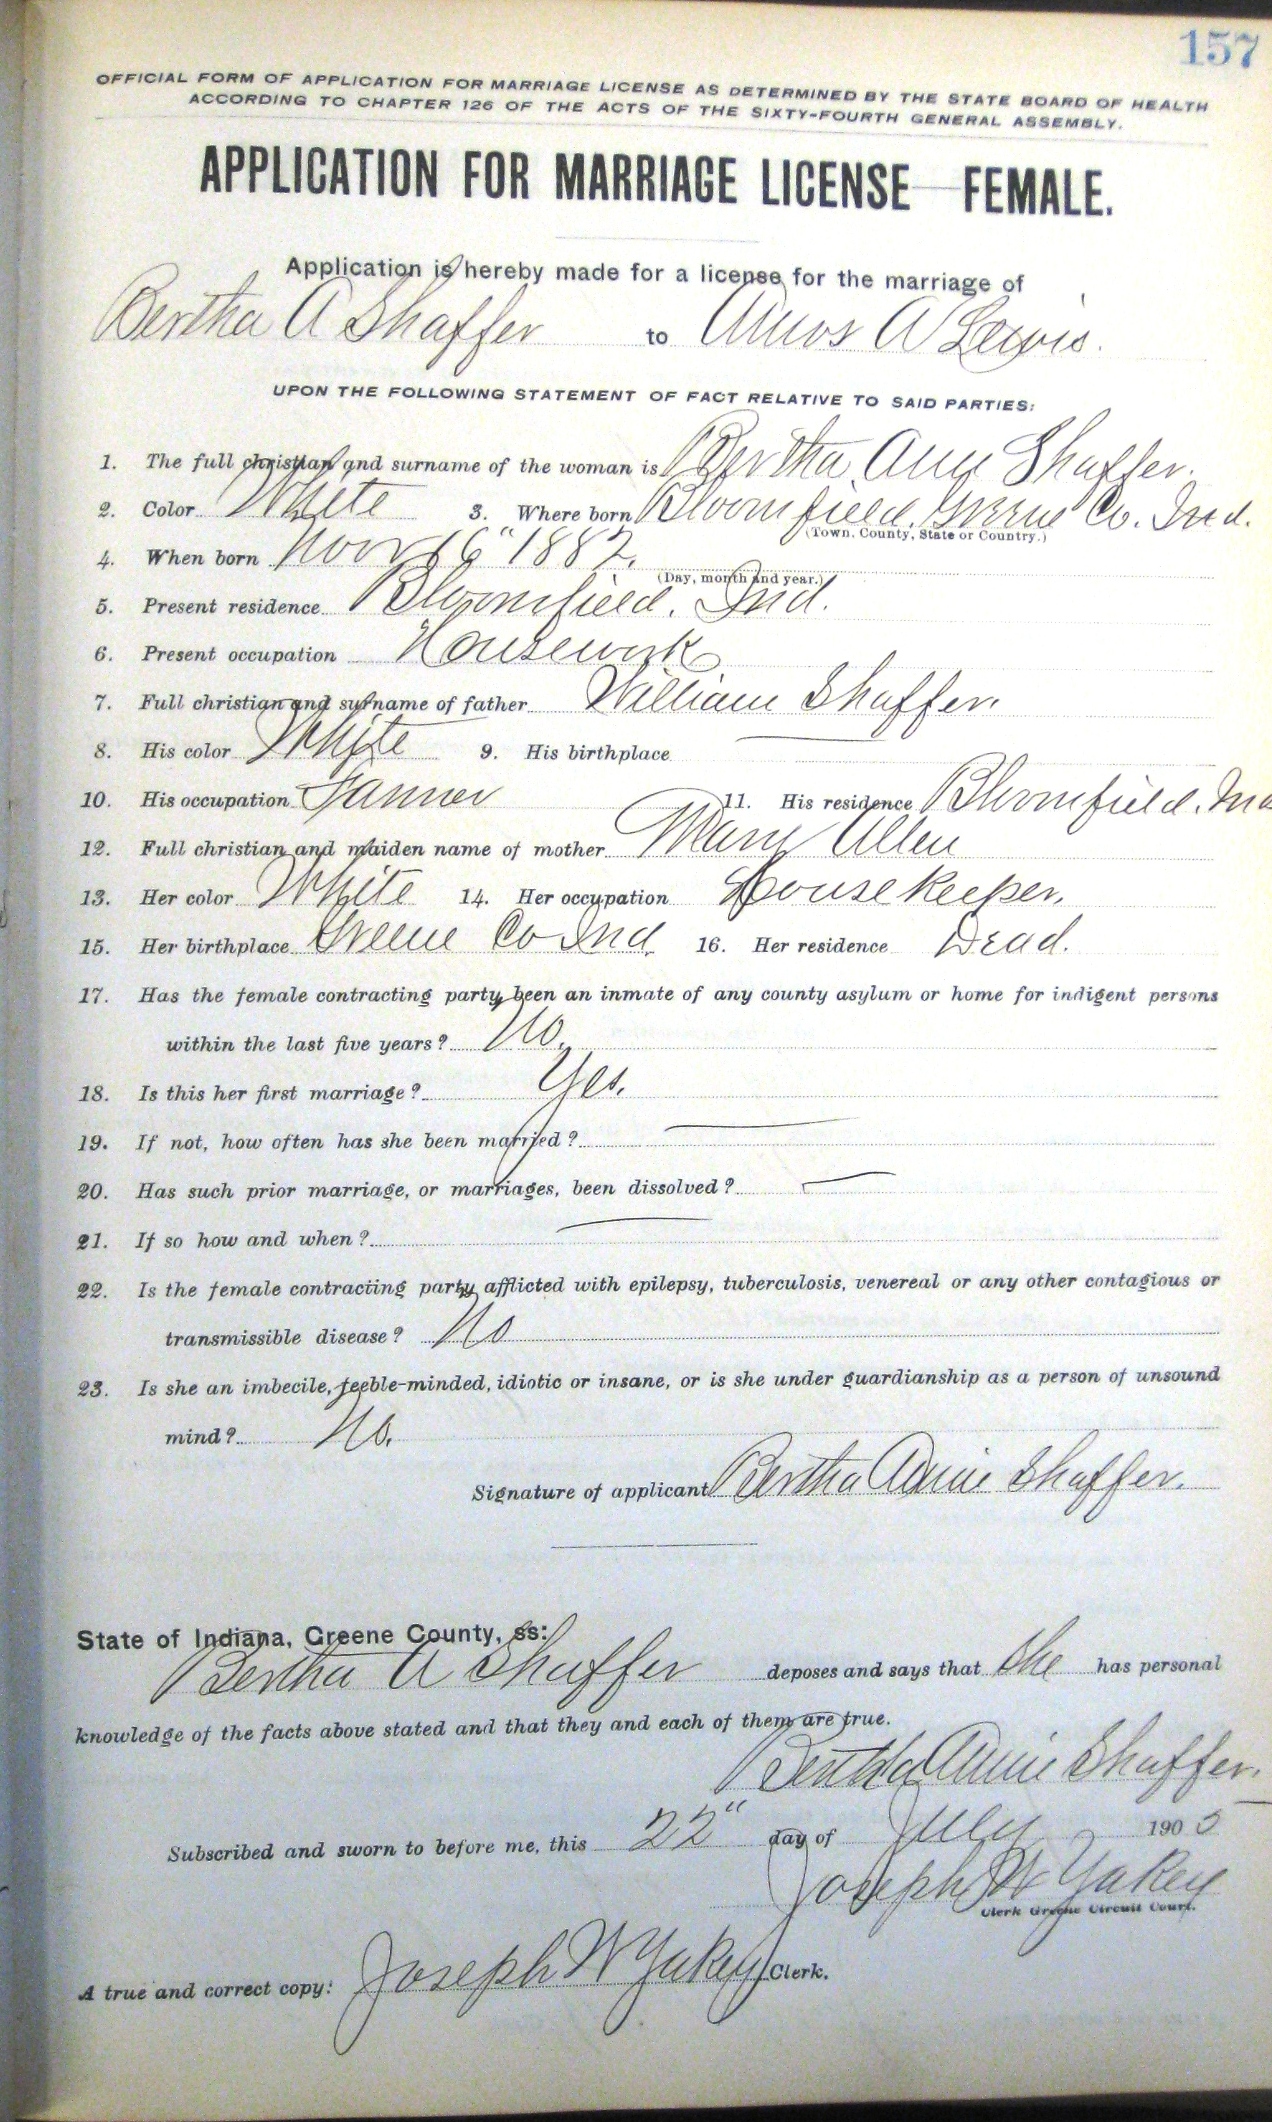 157
OFFICIAL FORM OF APPLICATION FOR MARRIAGE LICENSE AS DETERMINED BY THE STATE BOARD OF HEALTH
ACCORDING TO CHAPTER 126 OF THE ACTS OF THE SIXTY-FOURTH GENERAL ASSEMBLY.
APPLICATION FOR MARRIAGE LICENSE—FEMALE.
Application is hereby made for a license for the marriage of
Bertha A Shaffer to Amos A Lewis.
UPON THE FOLLOWING STATEMENT OF FACT RELATIVE TO SAID PARTIES:
1. The full christian and surname of the woman is Bertha Ann Shaffer.
2. Color White 3. Where born Bloomfield, Greene Co. Ind.
(Town, County, State or Country.)
4. When born Nov 16" 1882.
(Day, month and year.)
5. Present residence Bloomfield. Ind.
6. Present occupation Housework
7. Full christian and surname of father William Shaffer.
8. His color White 9. His birthplace —
10. His occupation 11. His residence Bloomfield. Ind
12. Full christian and maiden name of mother Mary Allen
13. Her color White 14. Her occupation Housekeeper.
15. Her birthplace Greene Co Ind. 16. Her residence Dead.
17. Has the female contracting party been an inmate of any county asylum or home for indigent persons
within the last five years? No.
18. Is this her first marriage? Yes.
19. If not, how often has she been married? —
20. Has such prior marriage, or marriages, been dissolved? —
21. If so how and when? —
22. Is the female contracting party afflicted with epilepsy, tuberculosis, venereal or any other contagious or
transmissible disease? No
23. Is she an imbecile, feeble-minded, idiotic or insane, or is she under guardianship as a person of unsound
mind? No.
Signature of applicant Bertha Annie Shaffer.
State of Indiana, Greene County, ss:
Bertha A Shaffer deposes and says that She has personal
knowledge of the facts above stated and that they and each of them are true.
Bertha Annie Shaffer.
Subscribed and sworn to before me, this 22" day of July 1905
Joseph W Yakey
Clerk Greene Circuit Court.
A true and correct copy: Joseph W Yakey Clerk.